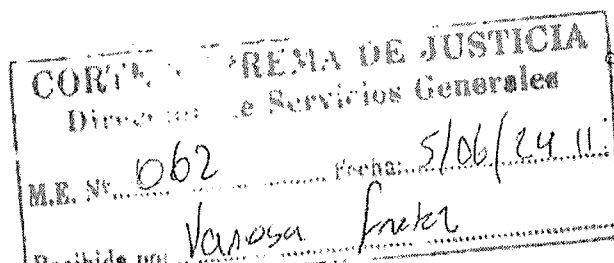 CORTE SUPREMA DE JUSTICIA
Dirección de Servicios Generales
M.E. Nº 062 Fecha: 5/06/24 11:
Recibido por Vanosa